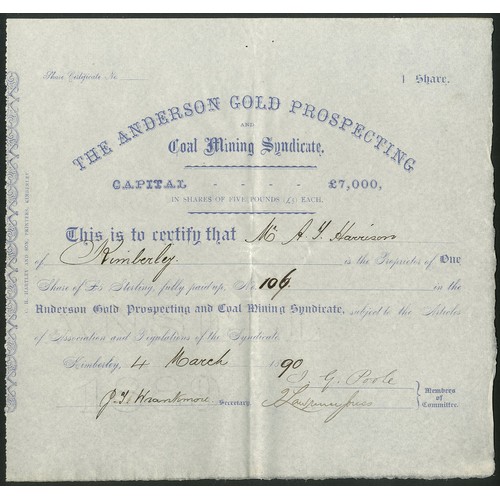 Share Certificate No.
1 Share.
THE ANDERSON GOLD PROSPECTING
AND
Coal Mining Syndicate.
CAPITAL - - - - £7,000,
IN SHARES OF FIVE POUNDS (£5) EACH.
This is to certify that Mr A. Y. Harrison
of Kimberley. is the Proprietor of One
Share of £5 Sterling, fully paid up, No. 106. in the
Anderson Gold Prospecting and Coal Mining Syndicate, subject to the Articles
of Association and Regulations of the Syndicate.
Kimberley, 4 March 1890
J. G. Poole
Secretary.
Members
of
Committee.